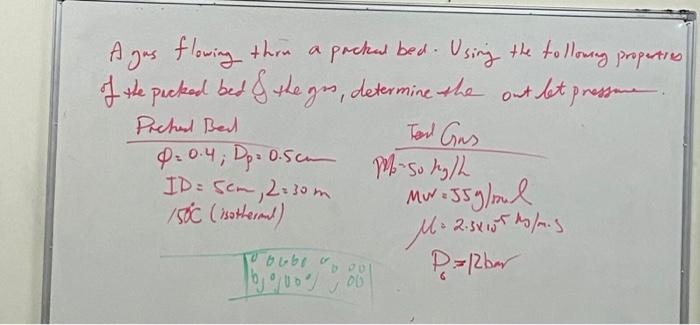 A gas flowing thru a packed bed. Using the following properties
of the packed bed & the gas, determine the outlet pressure.
Packed Bed
Φ=0.4; Dp=0.5cm
ID=5cm, L=30m
150°C (isothermal)
Gas
50 kg/h
MW=55g/mol
μ=2.5x10⁻⁵ kg/m.s
P₀=12bar